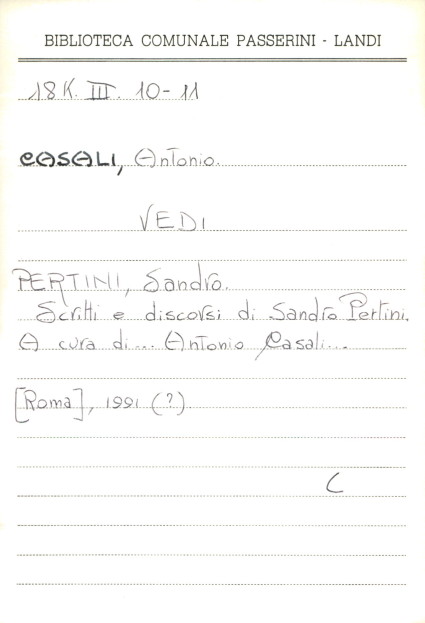 BIBLIOTECA COMUNALE PASSERINI - LANDI
18K. III. 10-11
CASALI, Antonio.
VEDI
PERTINI, Sandro.
Scritti e discorsi di Sandro Pertini.
A cura di... Antonio Casali...
[Roma], 1991 (?)
C